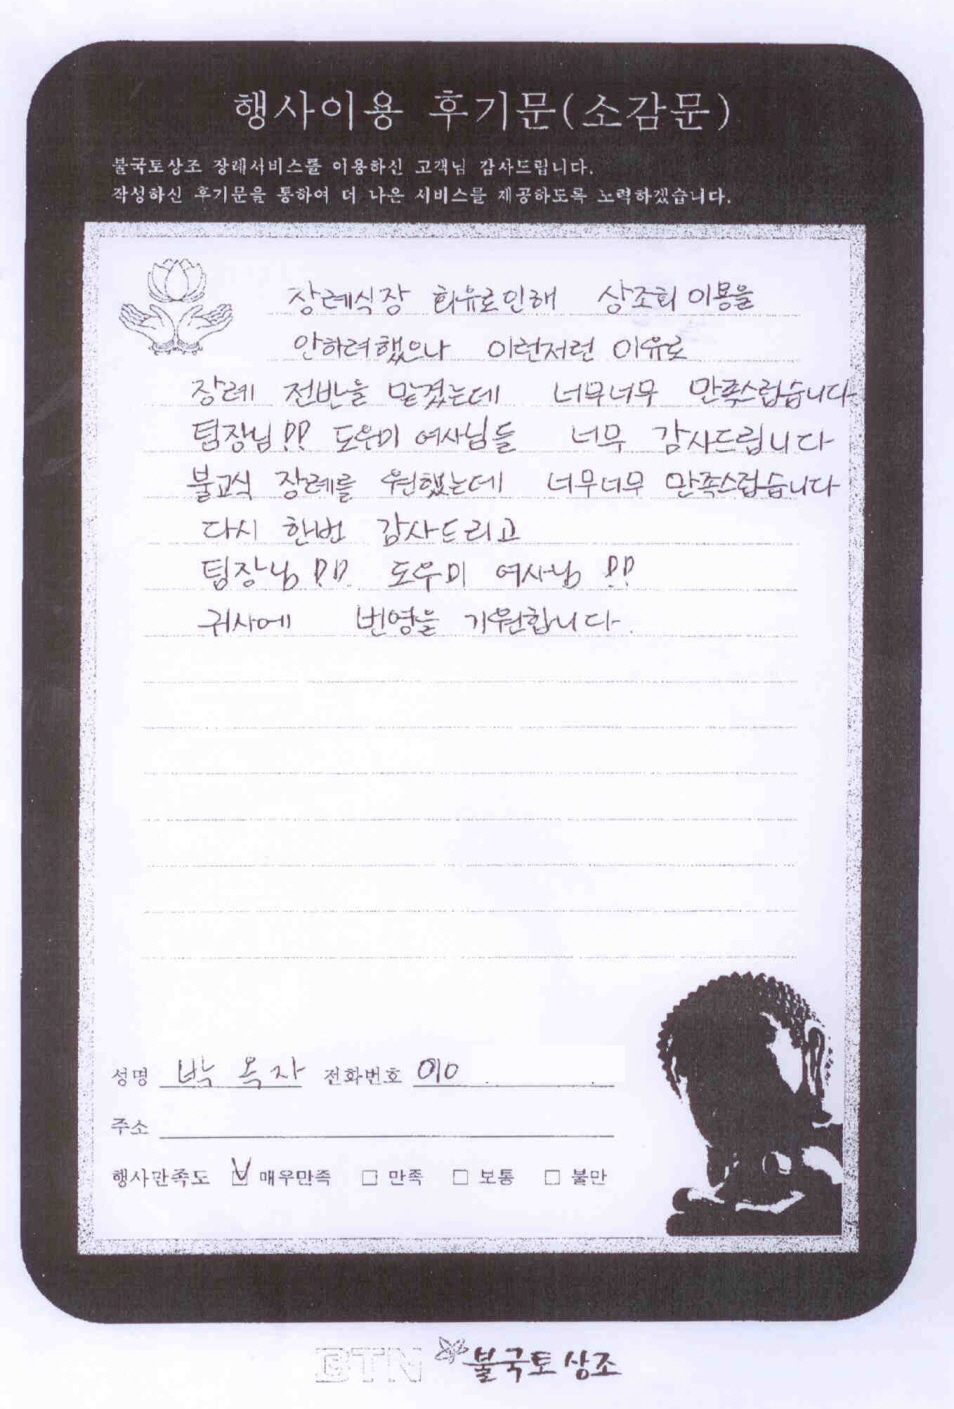 행사이용 후기문(소감문)
불국토상조 장례서비스를 이용하신 고객님 감사드립니다.
작성하신 후기문을 통하여 더 나은 서비스를 제공하도록 노력하겠습니다.
장례식장 회유로인해 상조회 이용을
안하려했으나 이런저런 이유로
장례 전반을 맡겼는데 너무너무 만족스럽습니다
팀장님!! 도우미 여사님들 너무 감사드립니다
불교식 장례를 원했는데 너무너무 만족스럽습니다
다시 한번 감사드리고
팀장님!!! 도우미 여사님 !!
귀사에 번영을 기원합니다.
성명 박옥자 전화번호 010
주소
행사만족도 매우만족 만족 보통 불만
BTN 불국토상조